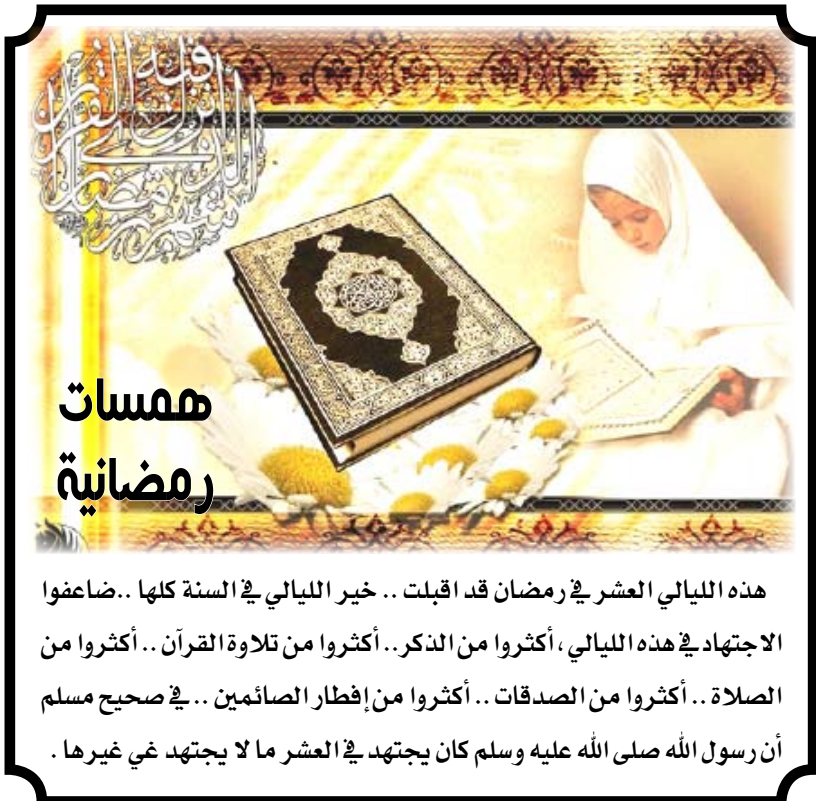 شهر رمضان الذي أنزل فيه القرآن
همسات
رمضانية
هذه الليالي العشر في رمضان قد اقبلت .. خير الليالي في السنة كلها ..ضاعفوا
الاجتهاد في هذه الليالي ، أكثروا من الذكر.. أكثروا من تلاوة القرآن .. أكثروا من
الصلاة .. أكثروا من الصدقات .. أكثروا من إفطار الصائمين .. في صحيح مسلم
أن رسول الله صلى الله عليه وسلم كان يجتهد في العشر ما لا يجتهد غي غيرها .